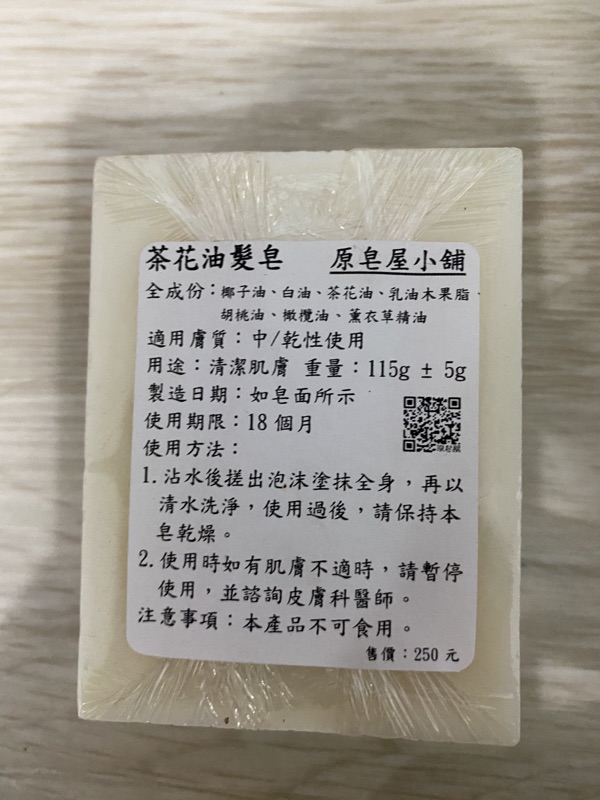 茶花油髮皂 原皂屋小舖
全成份：椰子油、白油、茶花油、乳油木果脂、
胡桃油、橄欖油、薰衣草精油
適用膚質：中/乾性使用
用途：清潔肌膚 重量：115g ± 5g
製造日期：如皂面所示
使用期限：18個月
使用方法：
1.沾水後搓出泡沫塗抹全身，再以
清水洗淨，使用過後，請保持本
皂乾燥。
2.使用時如有肌膚不適時，請暫停
使用，並諮詢皮膚科醫師。
注意事項：本產品不可食用。
售價：250元